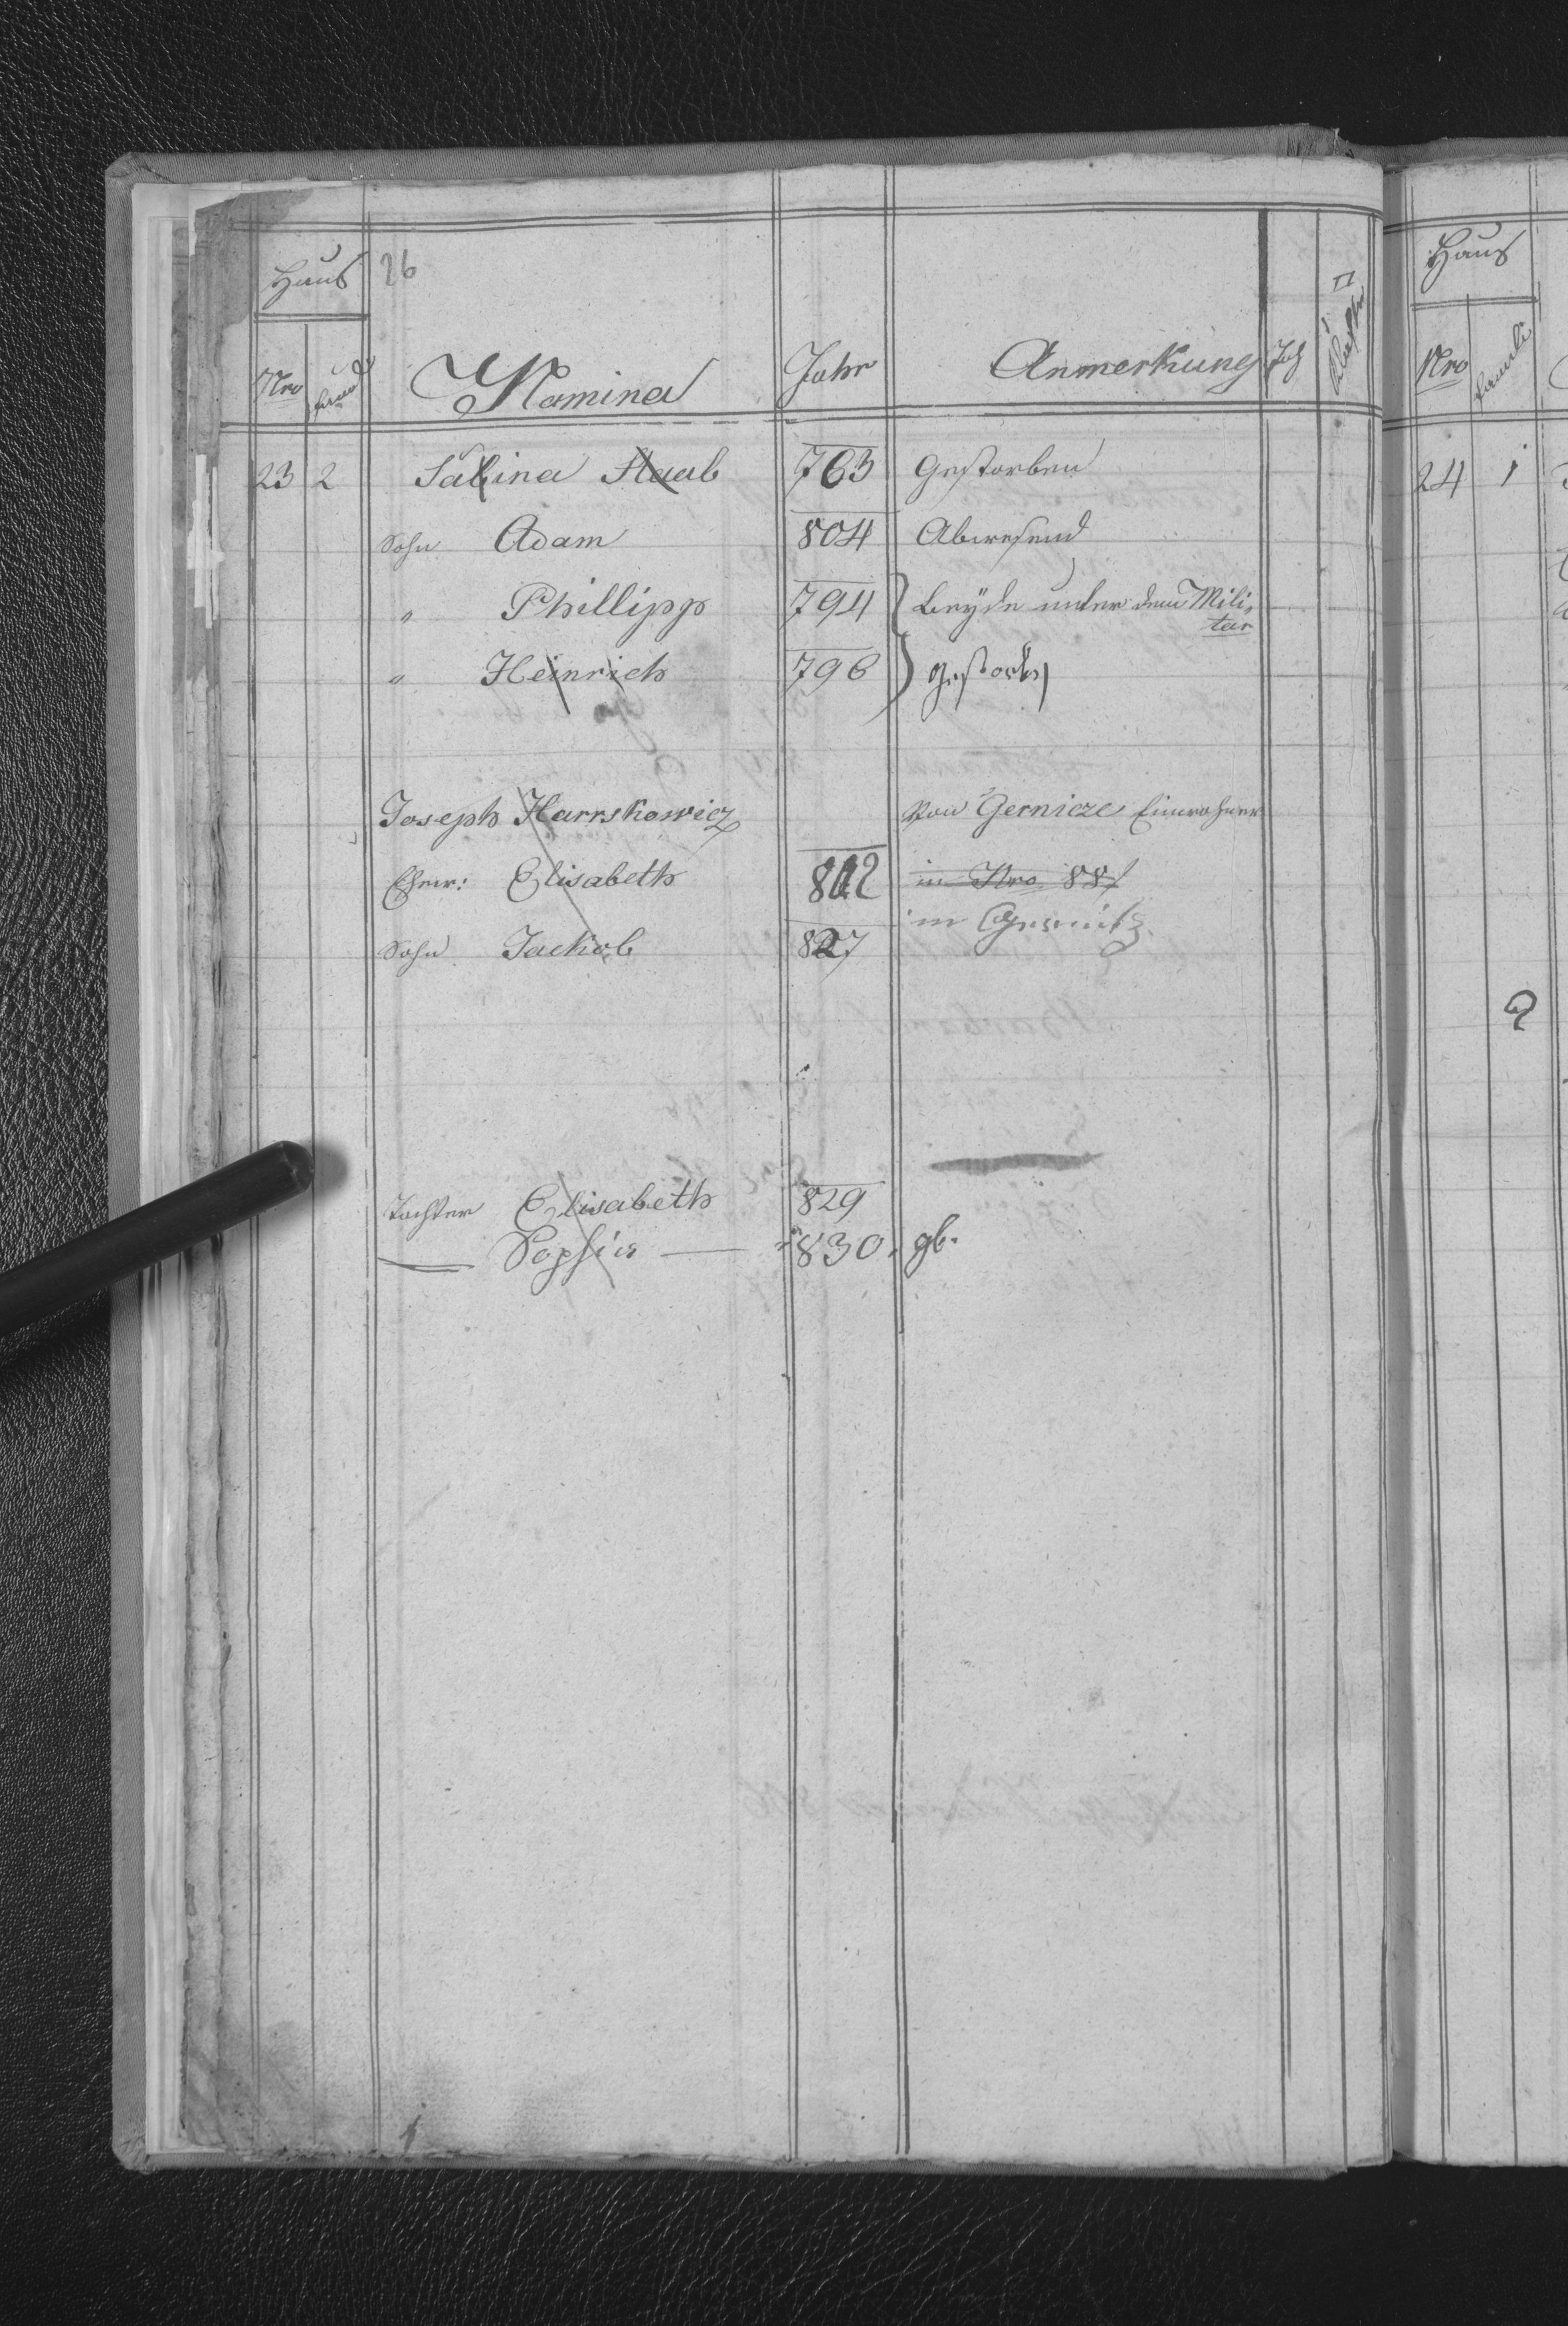 Haus 26
Nro Nomina Jahr Anmerkung
23 2 Sabina Staab 763 Gestorben
Sohn Adam 804 Abwesend
" Phillipp 794 Beyde unter dem Mili-
tar
" Heinrich 796 gestorben
Joseph Harrskowicz Von Gernicze Einwohner
Ehew: Elisabeth 802 in Nro 88
Sohn Jackob 827 in
Tochter Elisabeth 829
— Sophia — 830. gb.
Haus
Nro Famili
24 1
2